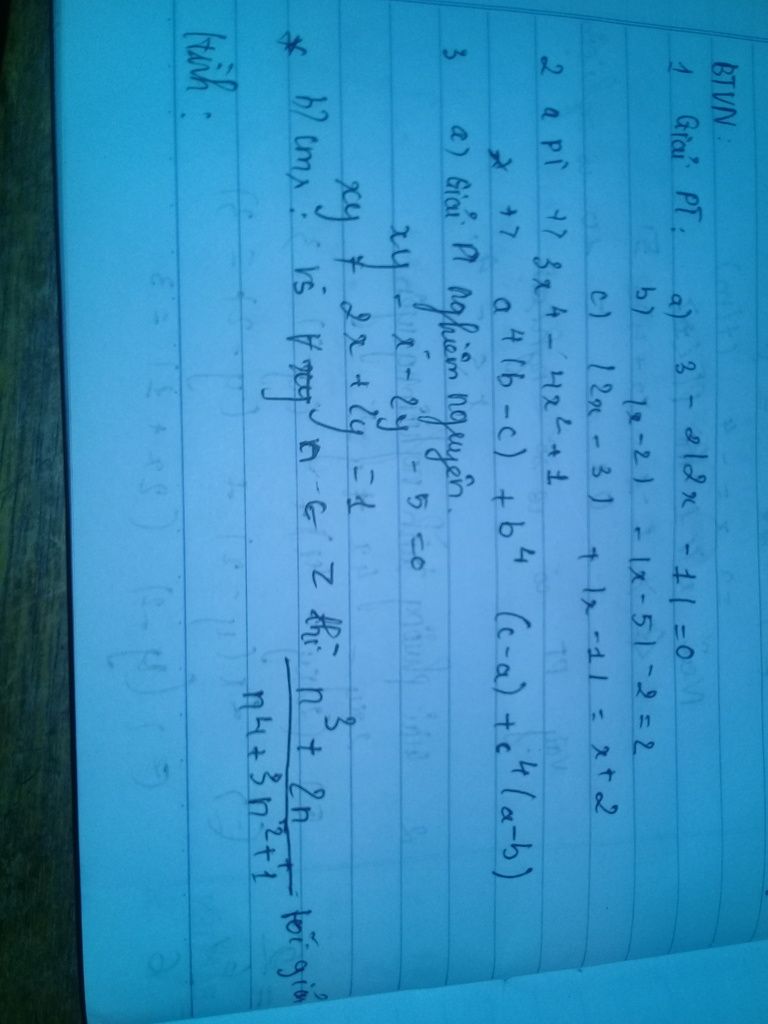 BTVN:
1 Giải PT: a) 3 - 2|2x - 1| = 0
b) |x-2| - |x-5| - 2 = 2
c) |2x - 3| + |x - 1| = x + 2
2 a PT +> 3x⁴ - 4x² + 1
* +> a⁴(b-c) + b⁴ (c-a) + c⁴(a-b)
3 a) Giải PT nghiệm nguyên.
xy - x - 2y - 5 = 0
xy + 2x + 2y = 1
* b) cmr: ∀ n ∈ Z thì n³ + 2n / n⁴ + 3n² + 1 tối giản